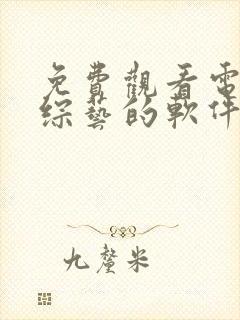 免費觀看電
綜藝的軟件
九釐米